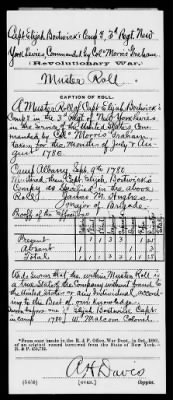 Capt Elijah Bostwick's Comp'y, 3d Reg't New
York Levies, Commanded by Col. Morris Graham
(Revolutionary War.)
Muster Roll
CAPTION.
A Muster Roll of Capt. Elijah Bostwick's
Comp'y in the 3d Reg't of New York Levies,
in the Service of the United States Com-
manded by Col. Morris Graham,
taken for the months of July & Au-
gust 1780
Camp Albany Sept. 9th 1780.
Mustered then Capt. Elijah Bostwick's
Company as Specified in the above
Roll. James M. Hughes
of Brigade
Proofs of the Effectives
Present
Absent
Total
that the within Muster Roll is
a true State of the Company without fraud to
the United States or any Individual, accord-
ing to the Best of our Knowledge.
me Elijah Bostwick Capt.
in camp 1780 W. Malcom Colonel
From copy in the R. & P. Office, War Dep't,
of an original record borrowed from the State of New York
R. & P.
A.H. Davis
Copyist.